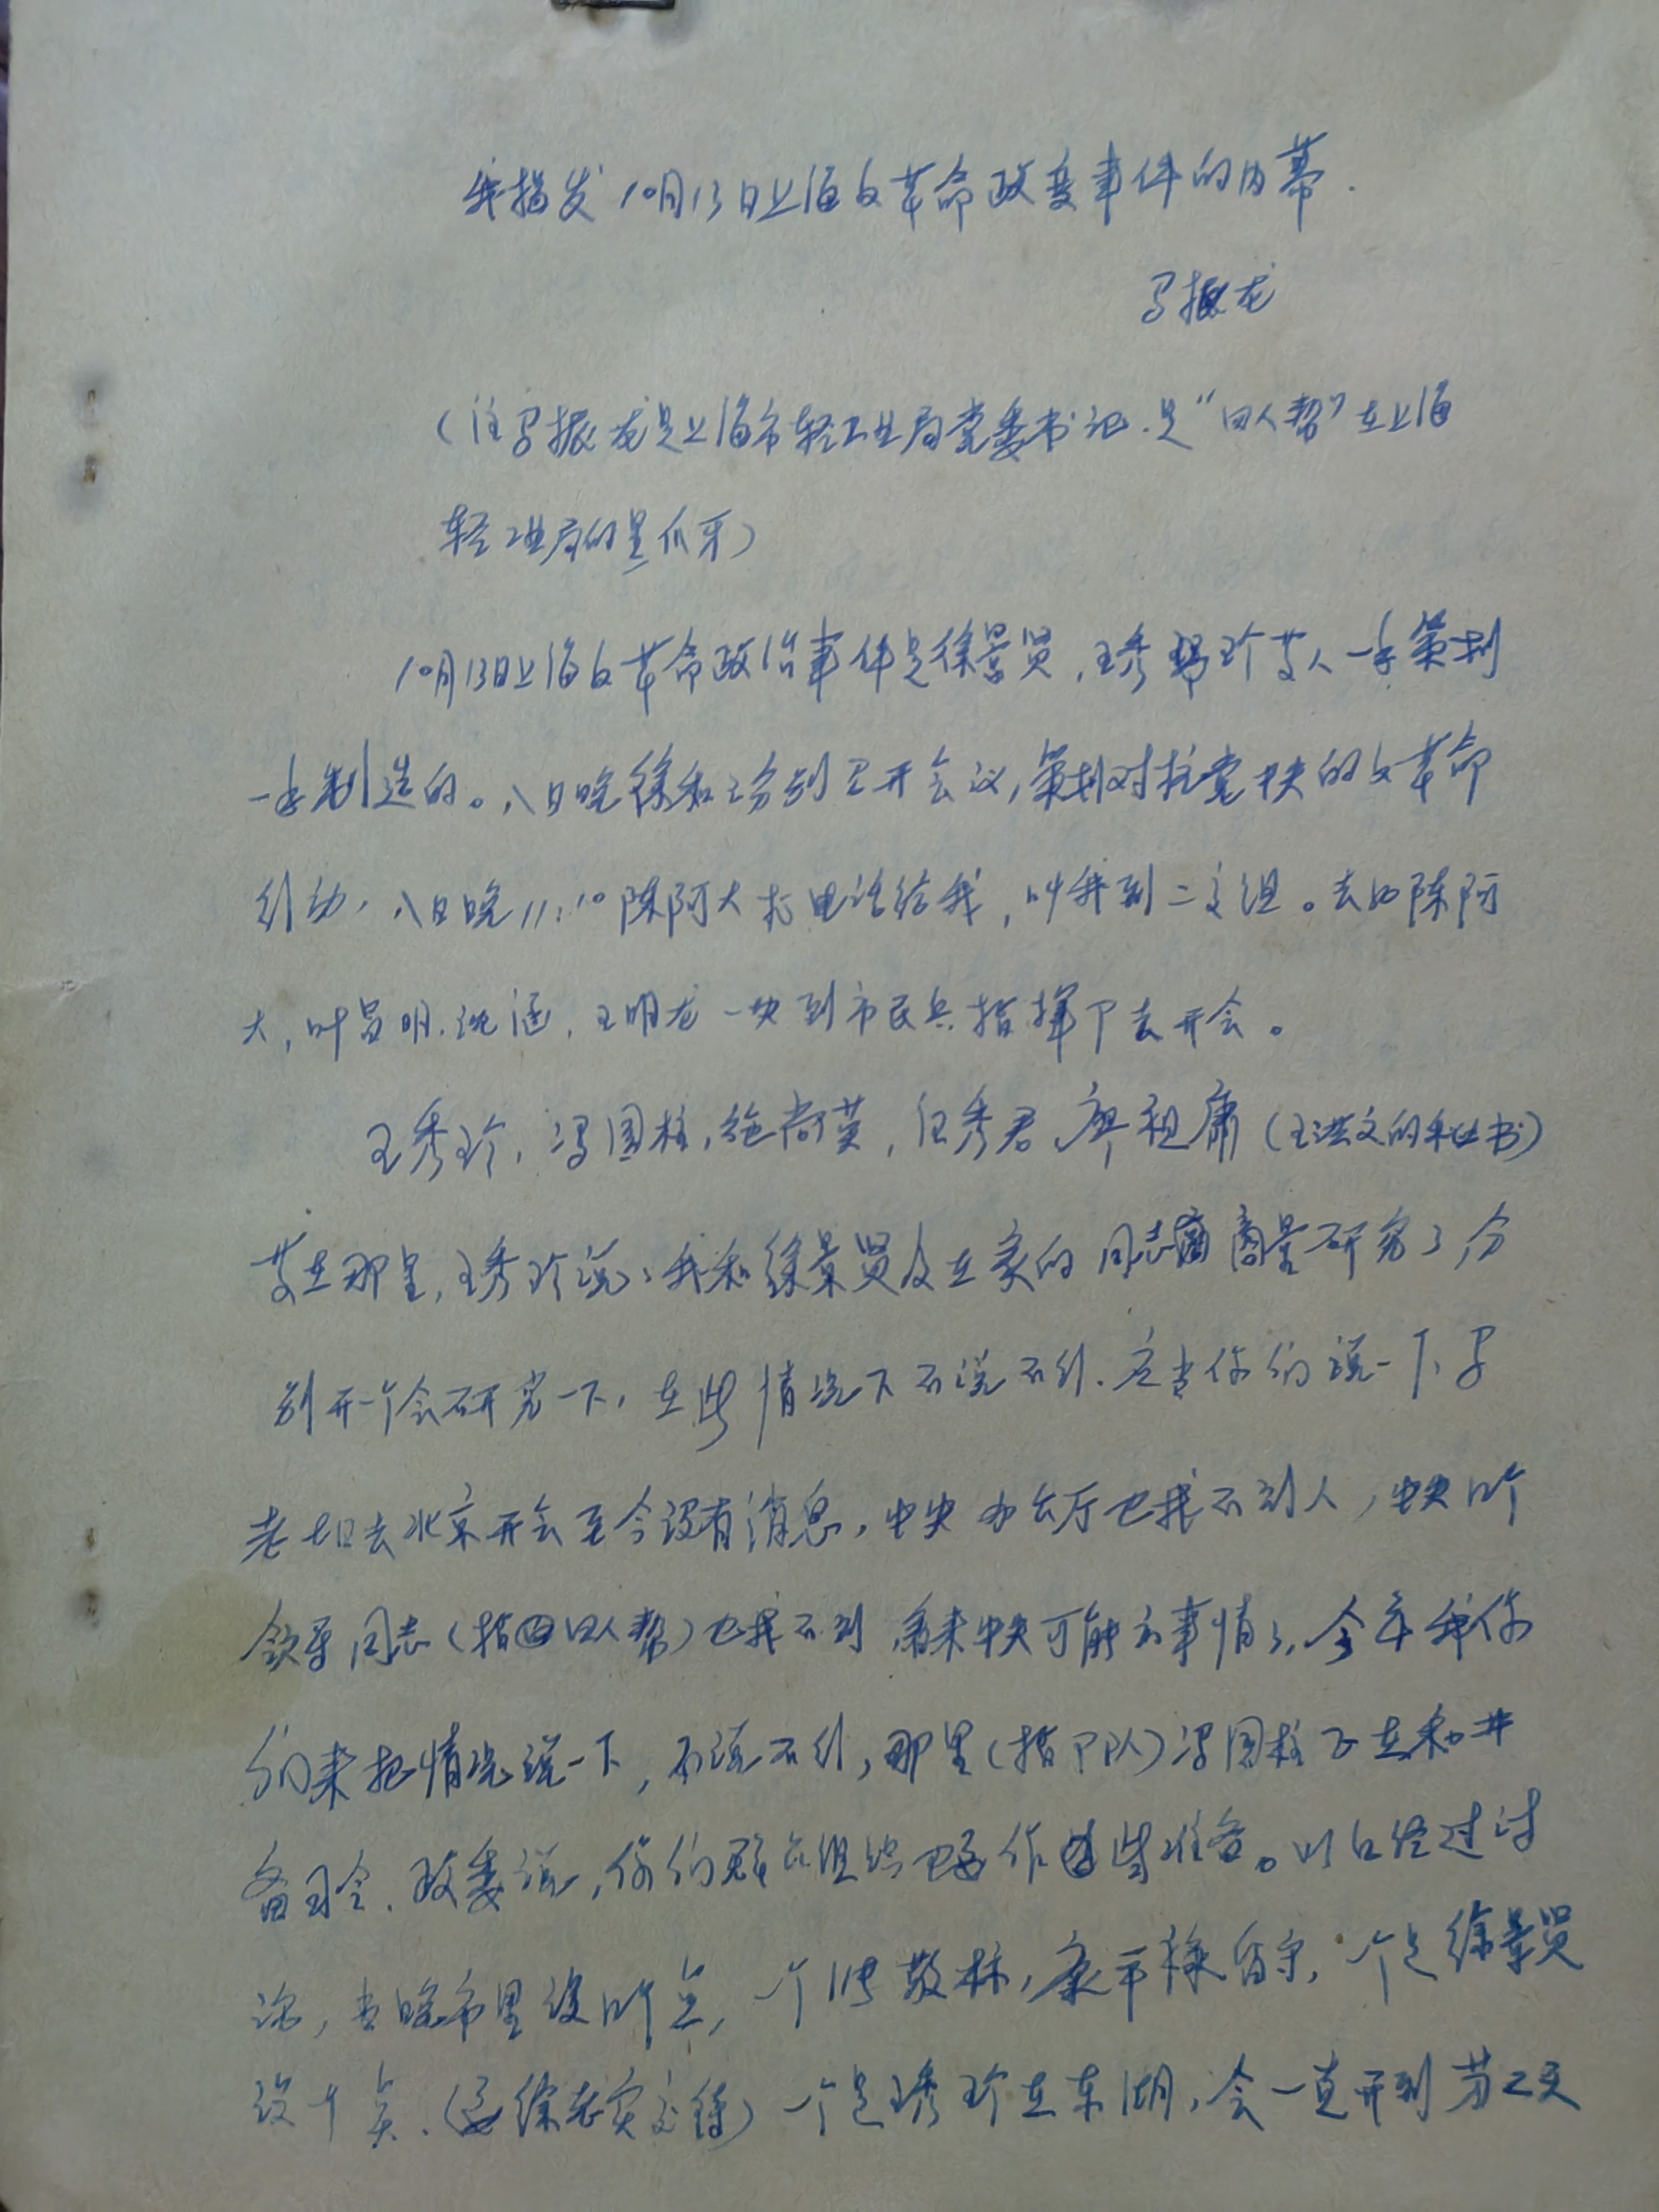 我揭发10月13日上海反革命政变事件的内幕.
马振龙
（注马振龙是上海市轻工业局党委书记.是“四人帮”在上海
轻工业局的黑爪牙）
10月13日上海反革命政治事件是徐景贤，王秀珍等人一手策划
一手制造的。八日晚徐和王分别召开会议，策划对抗党中央的反革命
行动，八日晚11:10陈阿大打电话给我，叫我到二交组。去的陈阿
大，叶昌明.沈涵，王明龙一块到市民兵指挥部去开会。
王秀珍，冯国柱，施尚英，任秀君、廖祖康（王洪文的秘书）
等在那里，王秀珍说：我和徐景贤及在家的同志商量研究了分
别开个会研究一下，在此情况下不说不行.应当你们说一下、马
老七日去北京开会至今没有消息，中央办公厅也找不到人，中央几个
领导同志（指四人帮）也找不到，看来中央可能有事情了，今年我你
们来把情况说一下，不说不行，那里（指部队）冯国柱正在和井
备司令.政委说，你们群众组织也要作些准备。以后经过讨
论，当晚市里设几个点，一个张敬标，康平路留守，一个是徐景贤
设个点.（要徐老实交待）一个是王秀珍在东湖，会一直开到第二天